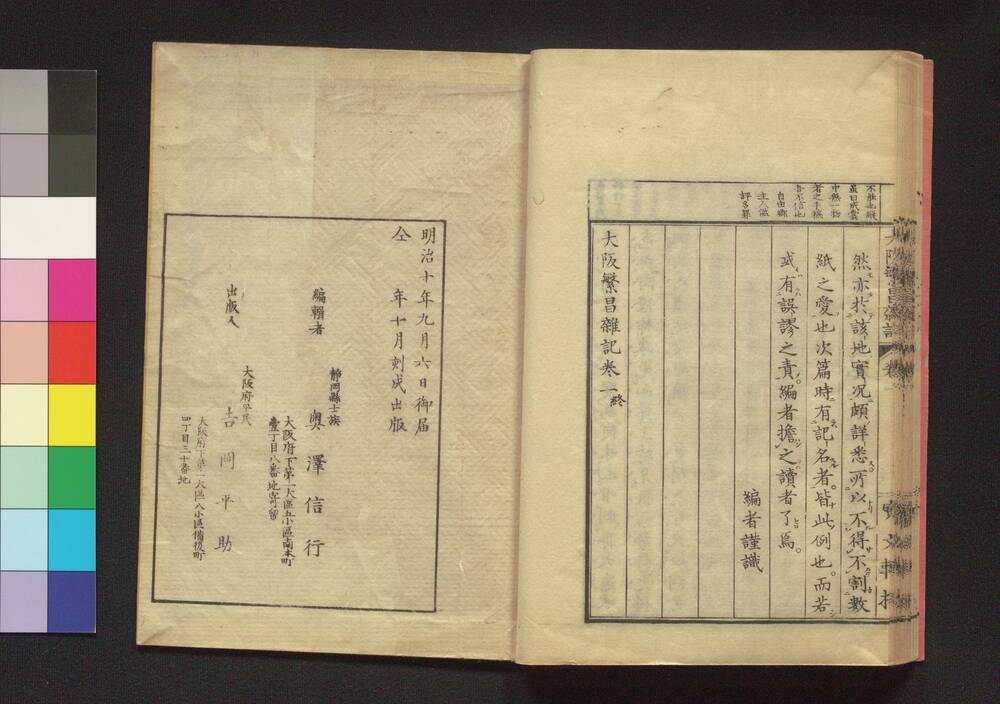 不能也。
中無一物
者之手稿
吾不信也
自由郷
主人滋
評多罪
然亦於該地實况頗詳悉。所以不得不割數
紙之愛也。次篇時有記名者。皆此例也。而若
或有誤謬之責。編者擔之。讀者了焉。
編者謹識
大阪繁昌雜記卷一終
明治十年九月六日御届
仝 年十月刻成出版
編輯者
靜岡縣士族
奧澤信行
大阪府下第一大區五小區南本町
壹丁目八番地寄留
出版人
大阪府平民
吉岡平助
大阪府下第一大區八小區備後町
四丁目三十番地